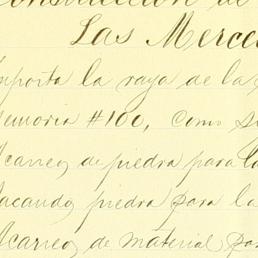 Construcción de
Las Merce
mporta la raya de la
emoria #100, como s
Acarreo de piedra para la
Sacando piedra para la
Acarreo de material pa